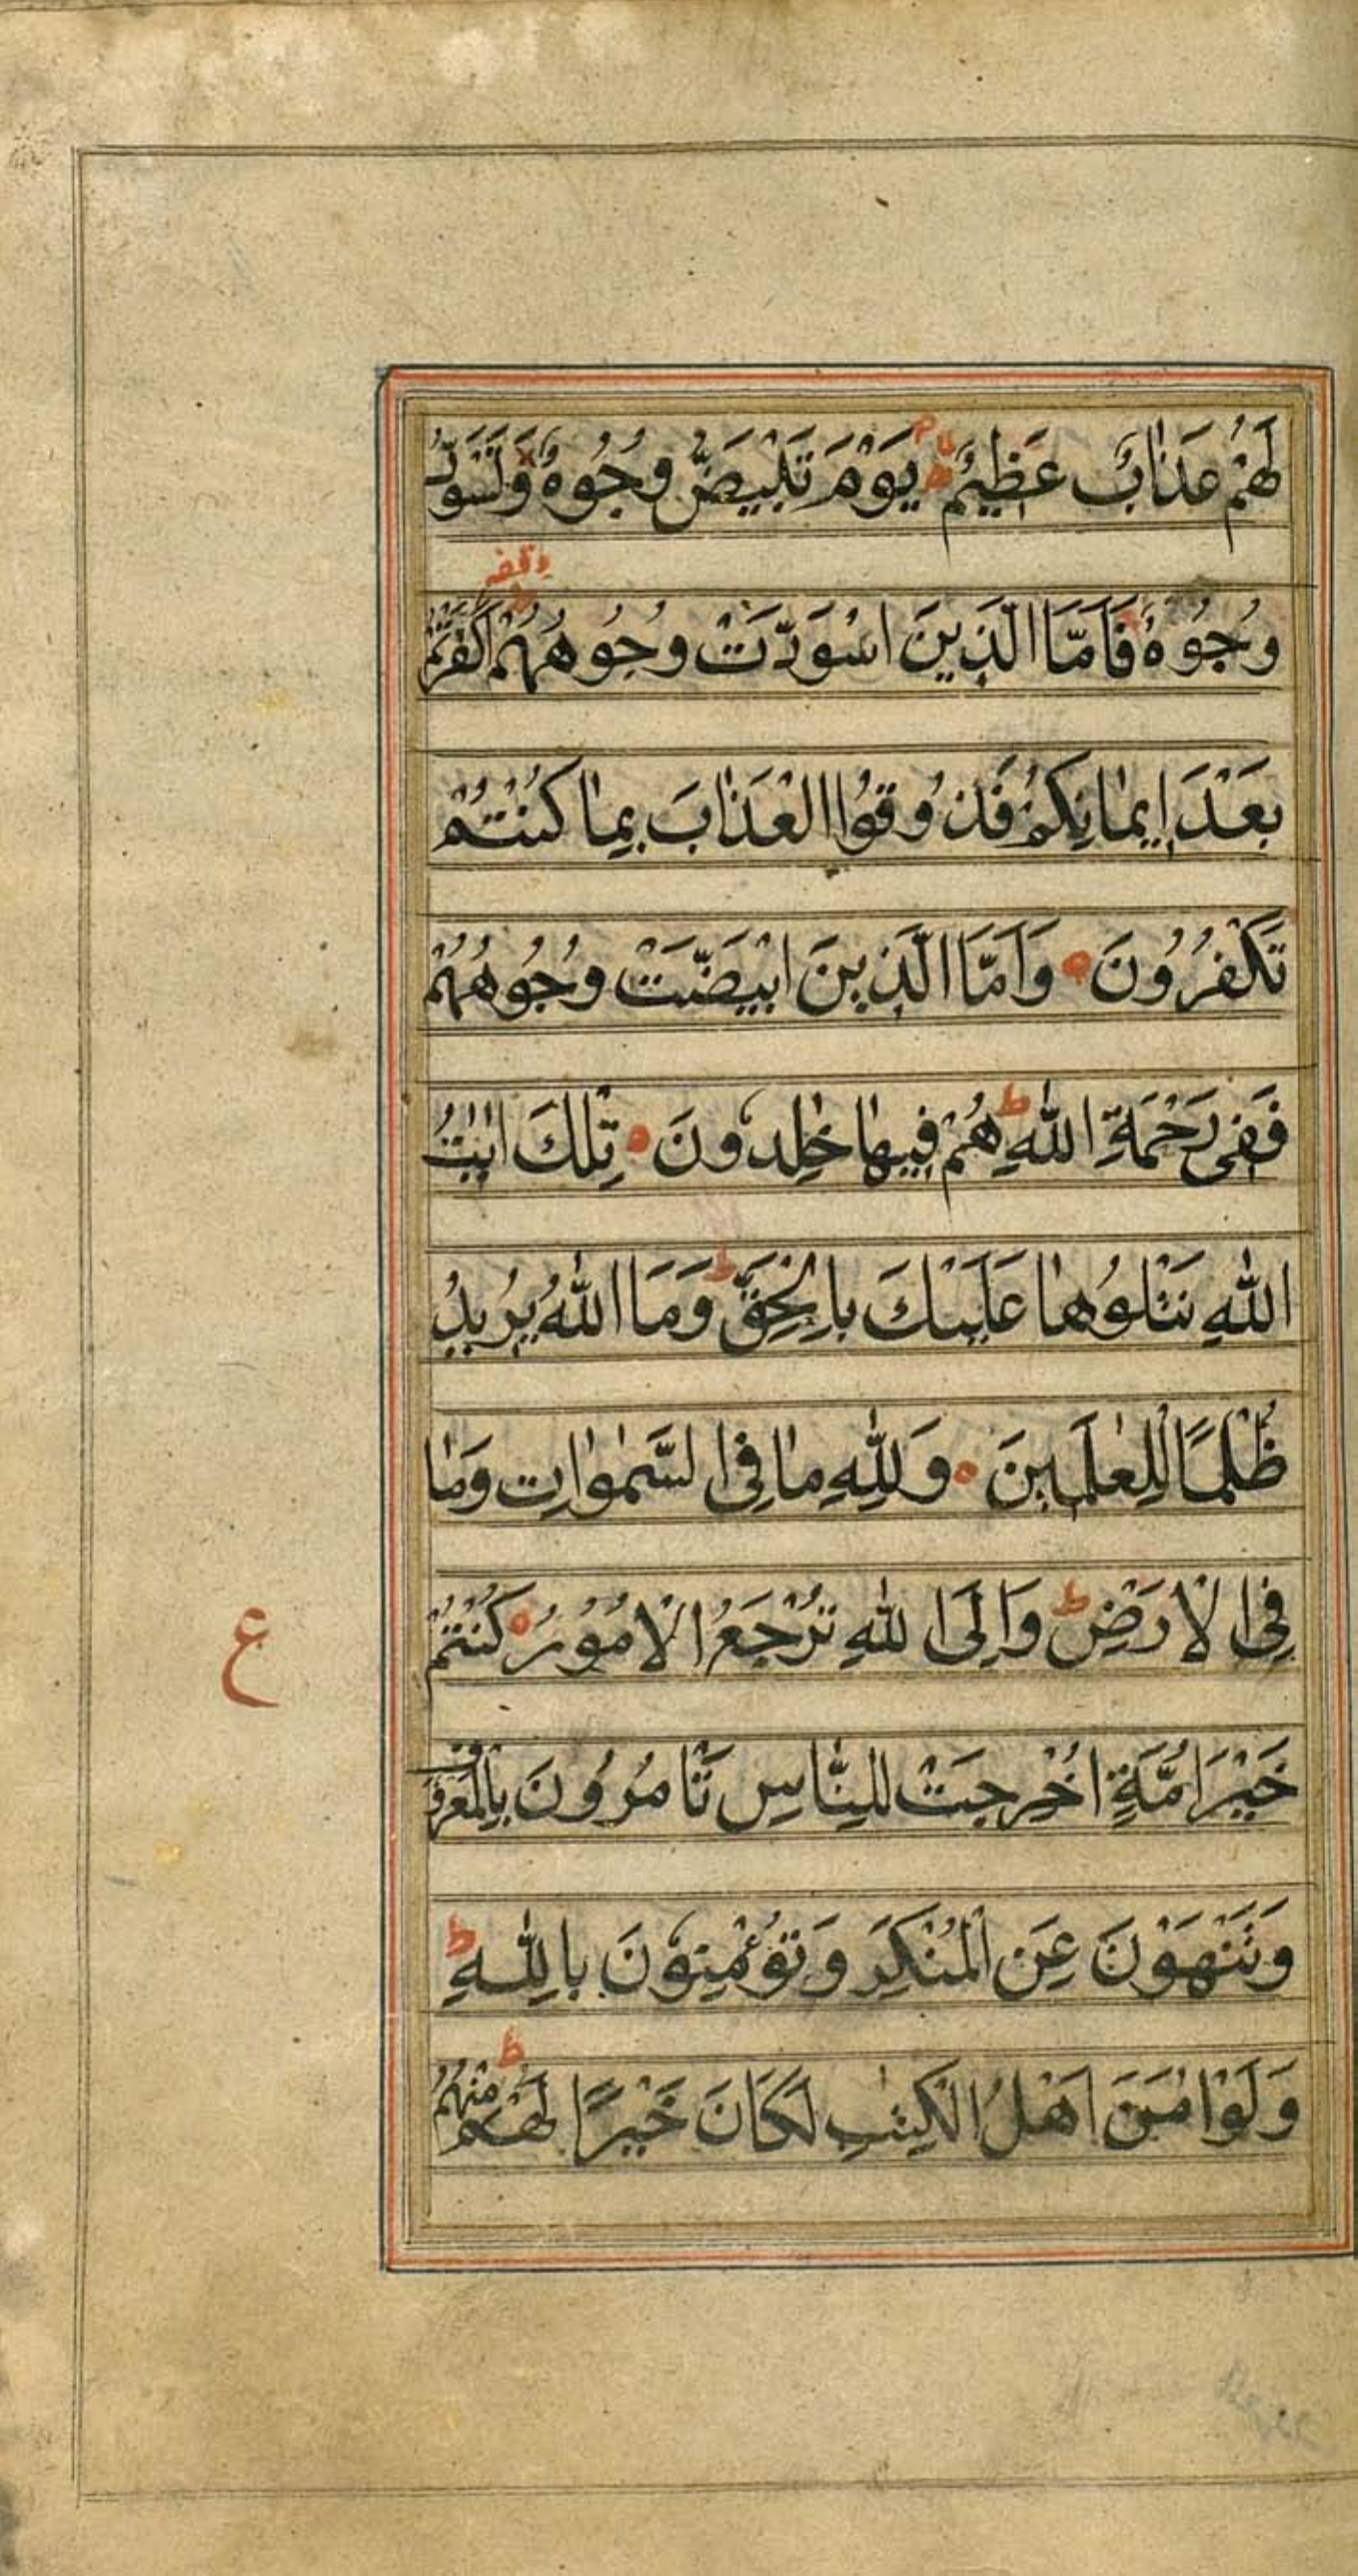 لَهُمْ عَذَابٌ عَظِيْمٌ ۙ يَوْمَ تَبْيَضُّ وُجُوْهٌ وَّتَسْوَدُّ
وقفه
وُجُوْهٌ فَاَمَّا الَّذِينَ اسْوَدَّتْ وُجُوهُهُمْ اَكَفَرْتُمْ
بَعْدَ اِيمَانِكُمْ فَذُوقُوا الْعَذَابَ بِمَا كُنْتُمْ
تَكْفُرُونَ وَاَمَّا الَّذِينَ ابْيَضَّتْ وُجُوهُهُمْ
فَفِي رَحْمَةِ اللّٰهِ ط هُمْ فِيهَا خٰلِدُونَ تِلْكَ اٰيٰتُ
اللّٰهِ نَتْلُوهَا عَلَيْكَ بِالْحَقِّ ط وَمَا اللّٰهُ يُرِيدُ
ظُلْمًا لِلْعٰلَمِينَ وَلِلّٰهِ مَا فِي السَّمٰوَاتِ وَمَا
فِي الْاَرْضِ ط وَاِلَى اللّٰهِ تُرْجَعُ الْاُمُوْرُ كُنْتُمْ
ع
خَيْرَ اُمَّةٍ اُخْرِجَتْ لِلنَّاسِ تَأْمُرُونَ بِالْمَعْرُوفِ
وَتَنْهَوْنَ عَنِ الْمُنْكَرِ وَتُؤْمِنُونَ بِاللّٰهِ ط
وَلَوْ اٰمَنَ اَهْلُ الْكِتٰبِ لَكَانَ خَيْرًا لَهُمْ ط مِنْهُمُ